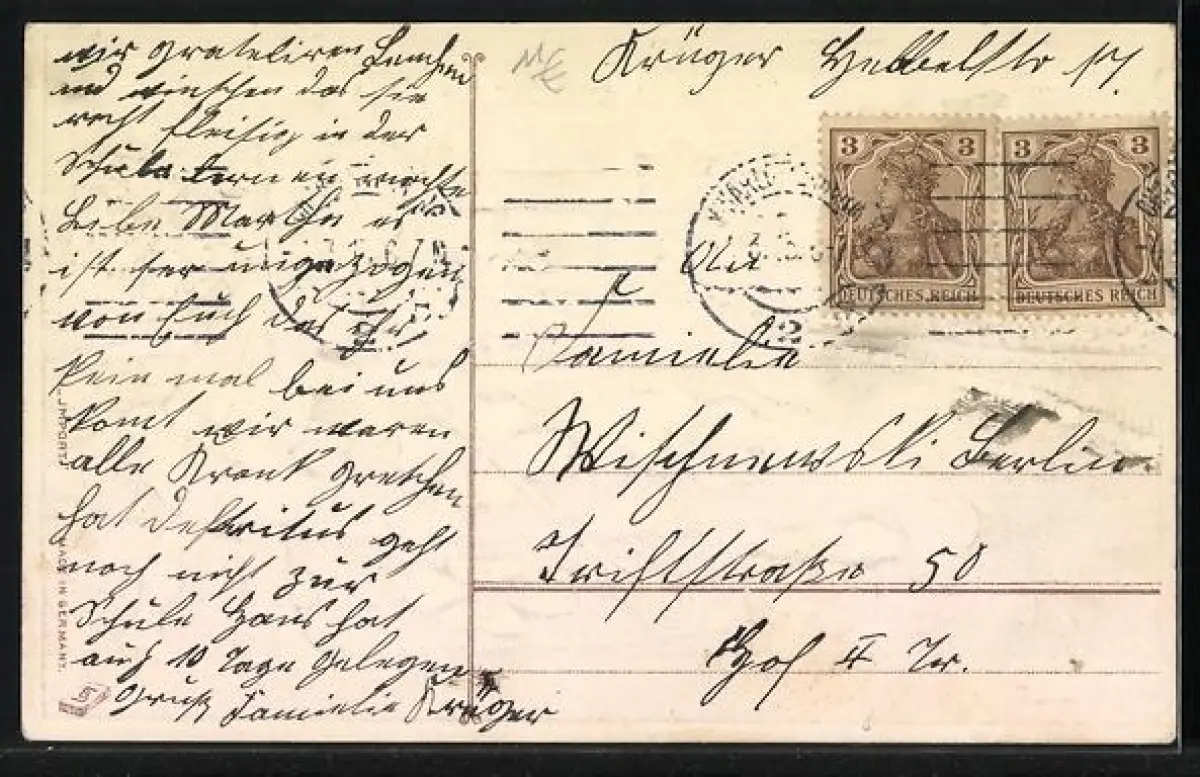 wir grateliren Lenchen
und winschen das sie
recht fleisig in der
Schule lernen möchte
Libe Martha es
ist ser ungezogen
von Euch das ihr
kein mal bei uns
komt wir waren
alle Krank Gretchen
hat geht
noch nicht zur
Schule Hans hat
auch 10 Tage gelegen
Gruß Familie Krüger
Krüger Hebbelstr 17
3 3 3 3
DEUTSCHES REICH DEUTSCHES REICH
2
Familie
Wischnewski Berlin
Triftstraße 50
Hof II Tr.
IMPORTÉ
MADE IN GERMANY.